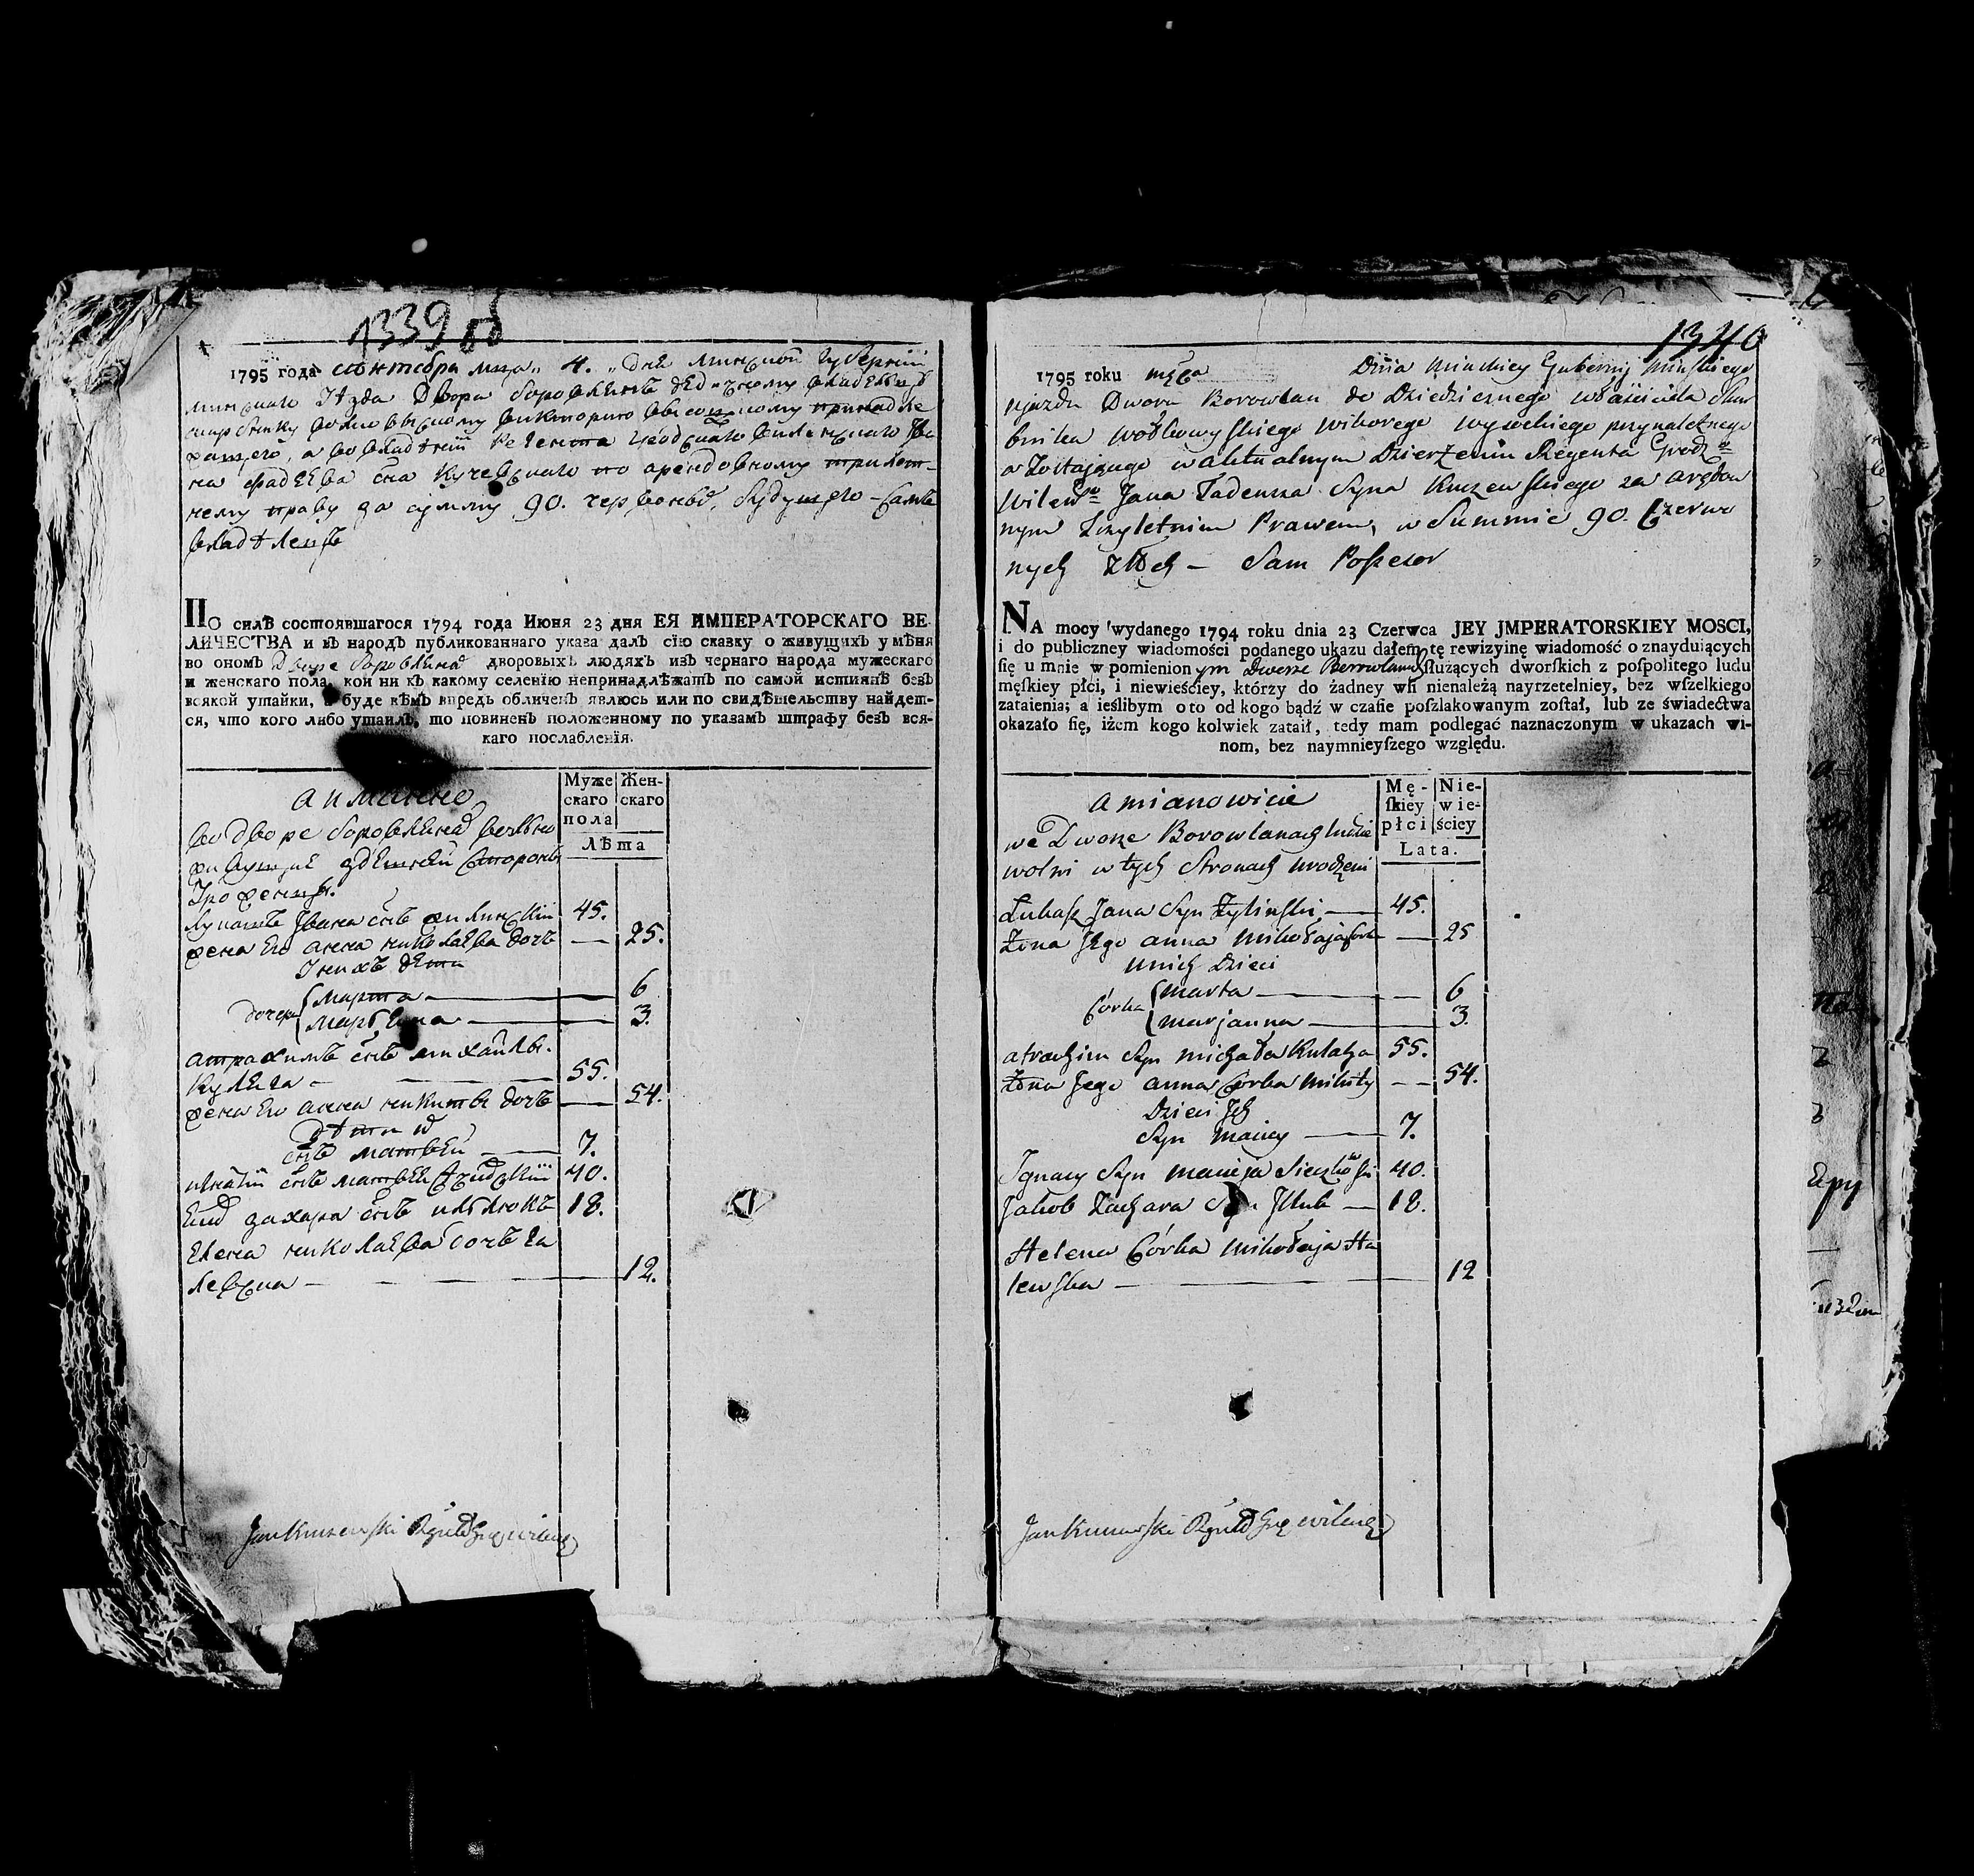 1339 об
1795 года сентября мца „ 4. „ дня минской губернии
минскаго уезда двора боровлянъ дедичному
волковыскому викторию высоцкому принадле
жащего, а во владѣнии регента виленскаго Iва
на фадеева сна кучевскаго по арендовному трилет-
нему праву за сумму 90. червоныхъ, будущего - самъ
владѣлецъ
ПО силѣ состоявшагося 1794 года Июня 23 дня ЕЯ ИМПЕРАТОРСКАГО ВЕ-
ЛИЧЕСТВА и въ народъ публикованнаго указа далъ сїю сказку о живущихъ у мѣня
во ономъ дворе боровлянахъ дворовыхъ людяхъ изъ чернаго народа мужескаго
и женскаго пола, кои ни къ какому селенїю непринадлѣжатъ по самой истиннѣ безъ
всякой утайки, а буде кѣмъ впредь обличенъ явлюсь или по свидѣтельству найдет-
ся, что кого либо утаилъ, то повиненъ положенному по указамъ штрафу безъ вся-
каго послабленїя.
а имянно
Муже
скаго
пола
Жен-
скаго
Лѣта
во дворе боровлянахъ вольно
живущие здешней стороны
уроженцы.
лукашъ Iвана снъ жилинскiй 45.
жена его анна николаева дочь — 25.
у нихъ дети
дочери марта — 6
марьяна — 3.
атрахимъ снъ михайлы.
кулеша — 55.
жена его анна никиты дочь — 54.
дѣти ихъ
снъ матвей — 7.
игнатiй снъ матвея 40.
захара снъ 18.
елена николаева дочь га
левска — 12.
Jan Kuczewski
1340
1795 roku męca Dnia Minskiey Gubernij Minskiego
ujazdu Dworu Borowlan do Dziedzicznego właściciela Skar
bnika wołkowyskiego Wiktorego wysockiego przynależnego
a zostaiącego w aktualnym Dzierżeniu Regenta Grodz:o
Wileńs:o Jana Tadeusza Syna Kuczewskiego za arędow
nym Trzyletnim Prawem, w Summie 90. Czerwo
nych złłch — Sam Possesor
NA mocy wydanego 1794 roku dnia 23 Czerwca JEY JMPERATORSKIEY MOSCI,
i do publiczney wiadomości podanego ukazu dałem tę rewizyinę wiadomość o znayduiących
ſię u mnie w pomienionym Dworze Borowlanach ſłużących dworſkich z poſpolitego ludu
męſkiey płci, i niewieściey, którzy do żadney wſi nienależą nayrzetelniey, bez wſzelkiego
zataienia; a ieślibym oto od kogo bądź w czaſie poſzlakowanym zoſtał, lub ze świadectwa
okazało ſię, iżem kogo kolwiek zataił, tedy mam podlegać naznaczonym w ukazach wi-
nom, bez naymnieyſzego względu.
a mianowicie
Mę-
ſkiey
płci
Nie-
wie-
ściey
Lata.
we Dworze Borowlanach ludzie
wolni w tych Stronach urodzeni
Łukasz Jana Syn Żyliński — 45.
Żona Jego anna Mikołaja Corka — 25
u nich Dzieci
Córka Marta — 6
Marjanna — 3.
atrachim Syn Michała Kulesza 55.
Żona Jego anna Córka Mikity — 54.
Dzieci Jch
Syn Maciey — 7.
Jgnacy Syn Macieja 40.
Jakob Zachara Syn — 18.
Helena Córka Mikołaja Ha
lewska — 12
Jan Kuczewski